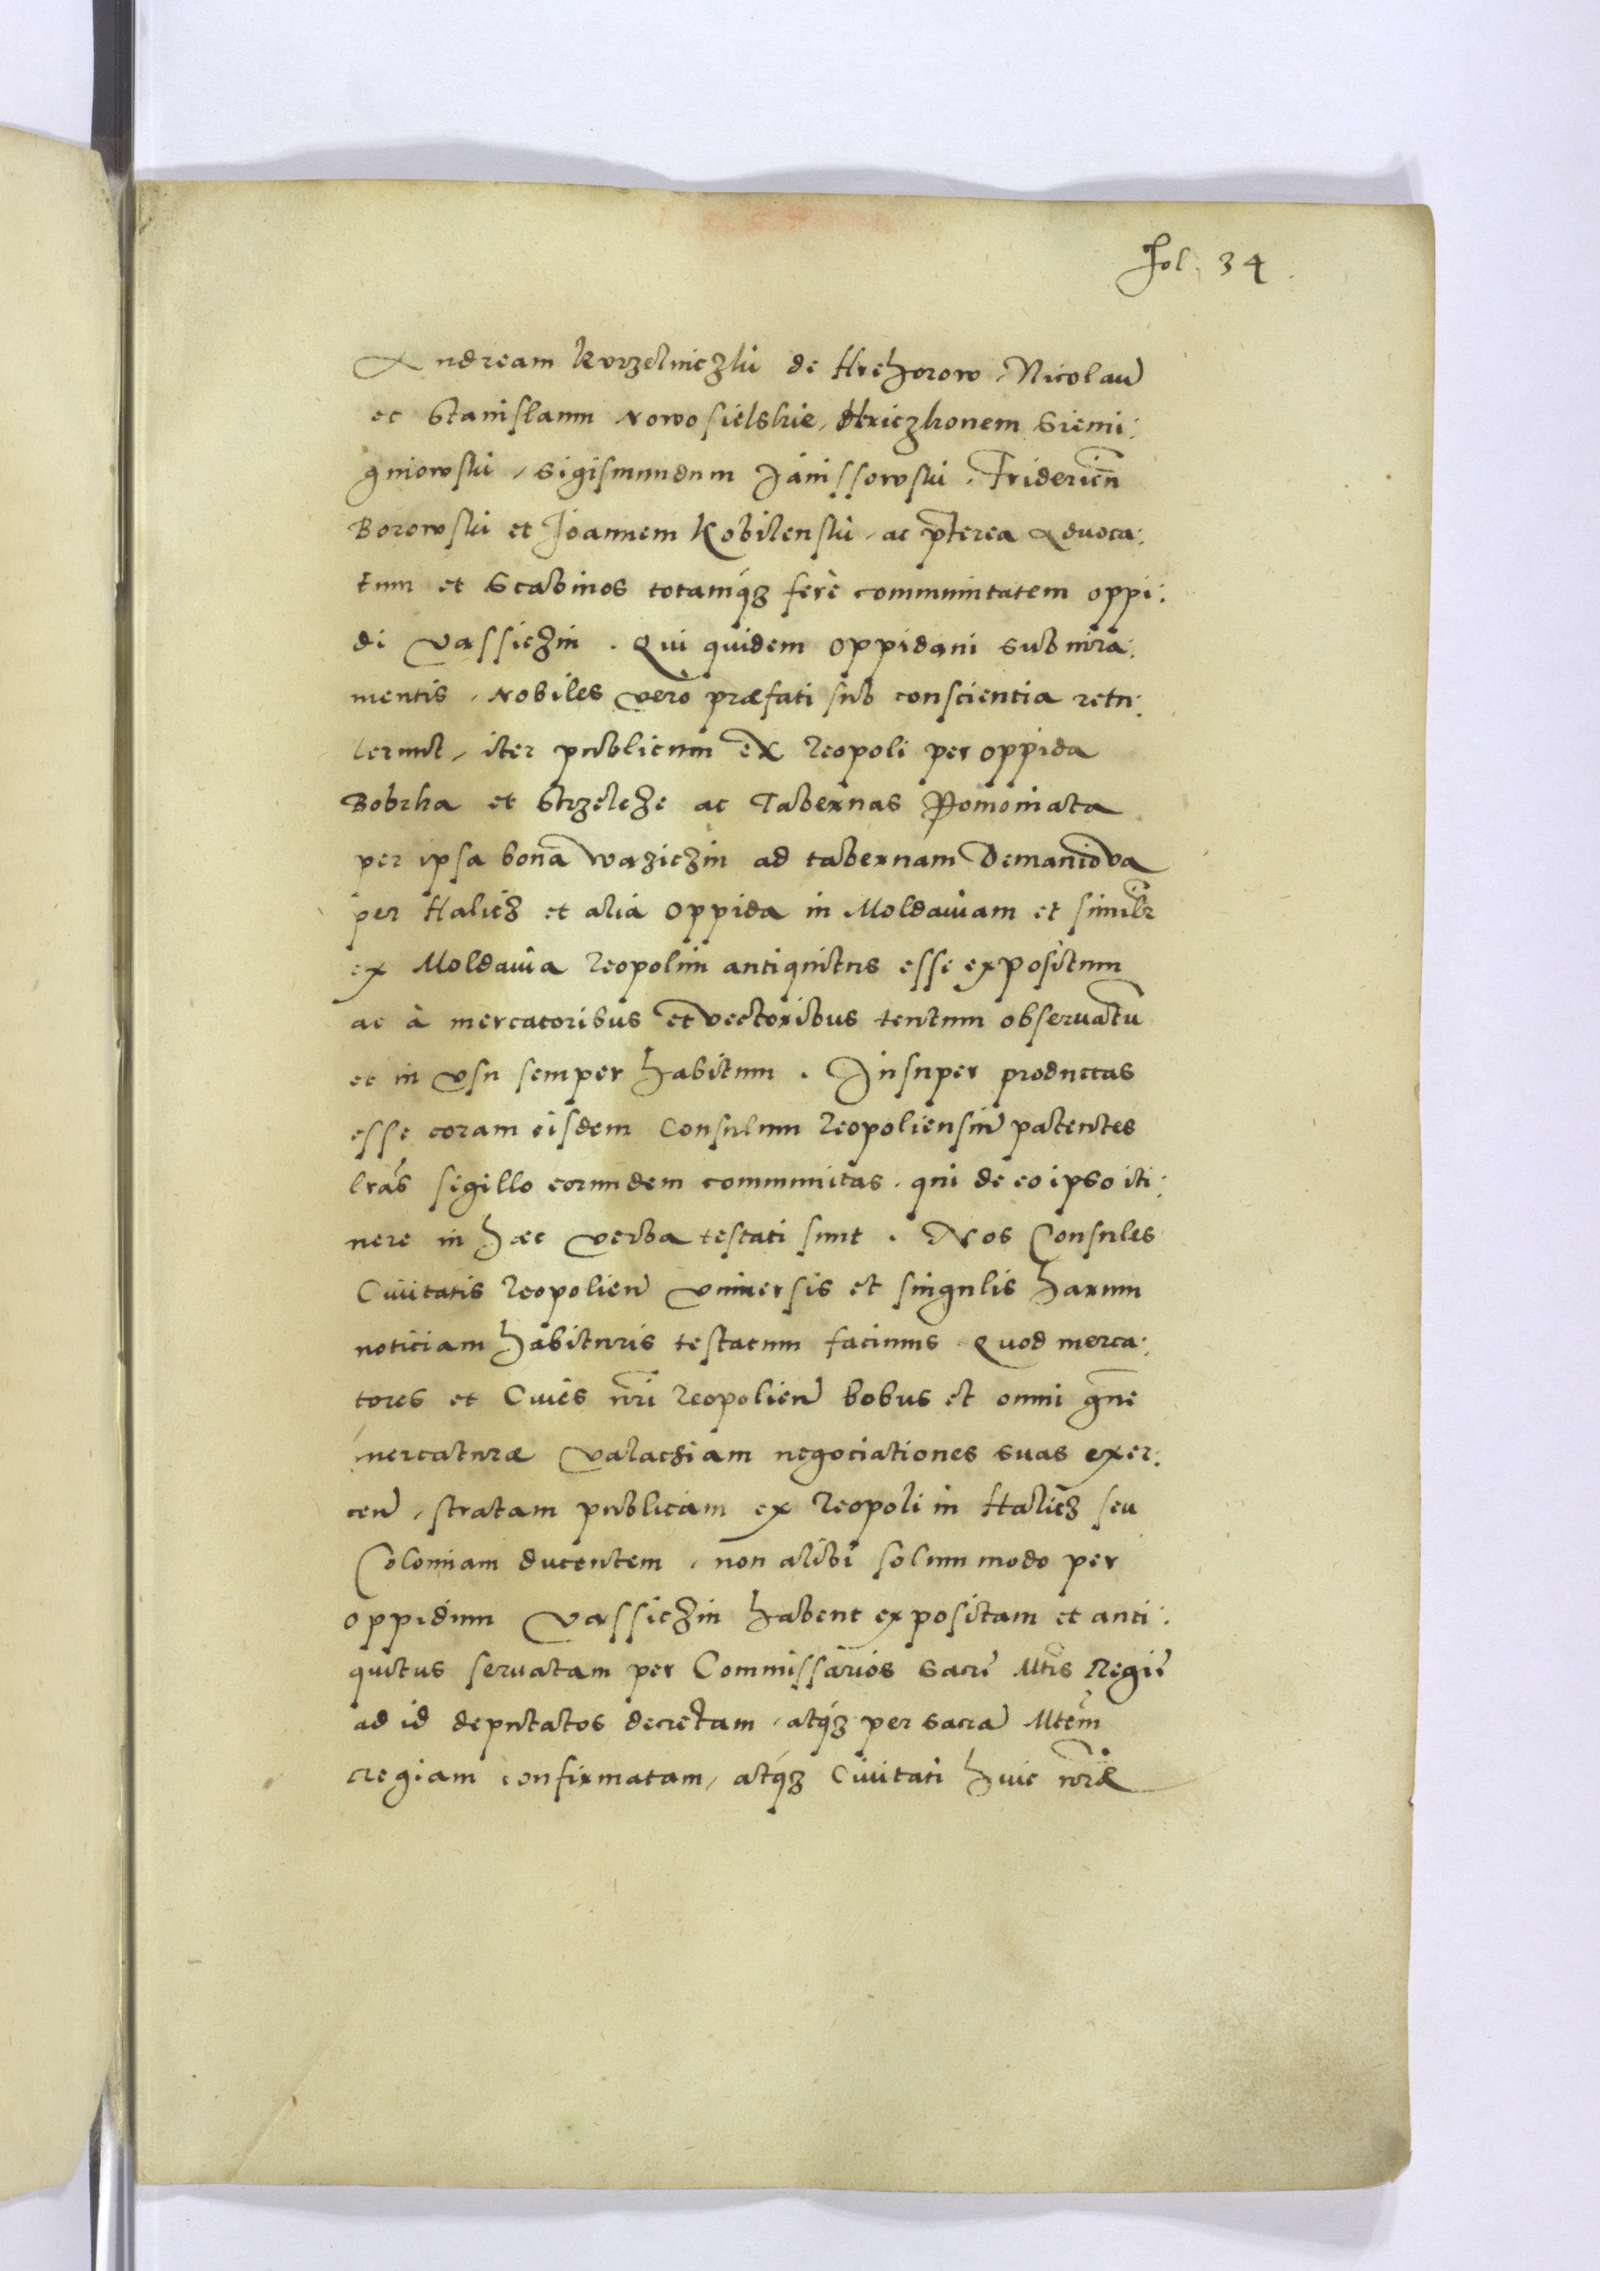 Fol. 34
Andream Kurzelniczki de Hrehorow, Nicolaū
et Stanislaum Nowosielskie, Hriczkonem Siemi:
gniowski, Sigismundum Janissowski, Fridericū
Borowski et Joannem Kobilenski, ac p̄terea Advoca:
tum et Scabinos totamq́ꝫ ferè communitatem oppi:
di Vassiczin. Qui quidem oppidani sub iura:
mentis, Nobiles verò præfati sub conscientia retu:
lerunt, iter publicum ex Leopoli per oppida
Bobrka et Strzelcze ac Tabernas Pomoniata
per ipsa bona Wasiczin ad tabernam Demanidva
per Halicz et alia oppida in Moldawiam et similr̄
ex Moldawia Leopolim antiquitus esse expositum
ac à mercatoribus et vectoribus tentum observatū
et in usu semper habitum. Insuper productas
esse coram eisdem Consulum Leopoliensiū patentes
lrās sigillo eorumdem communitas, qui de eo ipso iti:
nere in hæc verba testati sunt. Nos Consules
Civitatis Leopolieñ universis et singulis harum
noticiam habituris testatum facimus. Quod merca:
tores et Cives nr̄i Leopolieñ bobus et omni gn̄e
mercaturæ Valachiam negociationes suas exer:
ceñ, stratam publicam ex Leopoli in Halicz seu
Colomiam ducentem, non alibi solummodo per
oppidum Vassiczin habent expositam et anti:
quitus servatam per Commissarios Sacrę Mtis Regię
ad id deputatos decretam, atq́ꝫ per sacrā Mtem̄
regiam confirmatam, atq́ꝫ Civitati huic nr̄æ